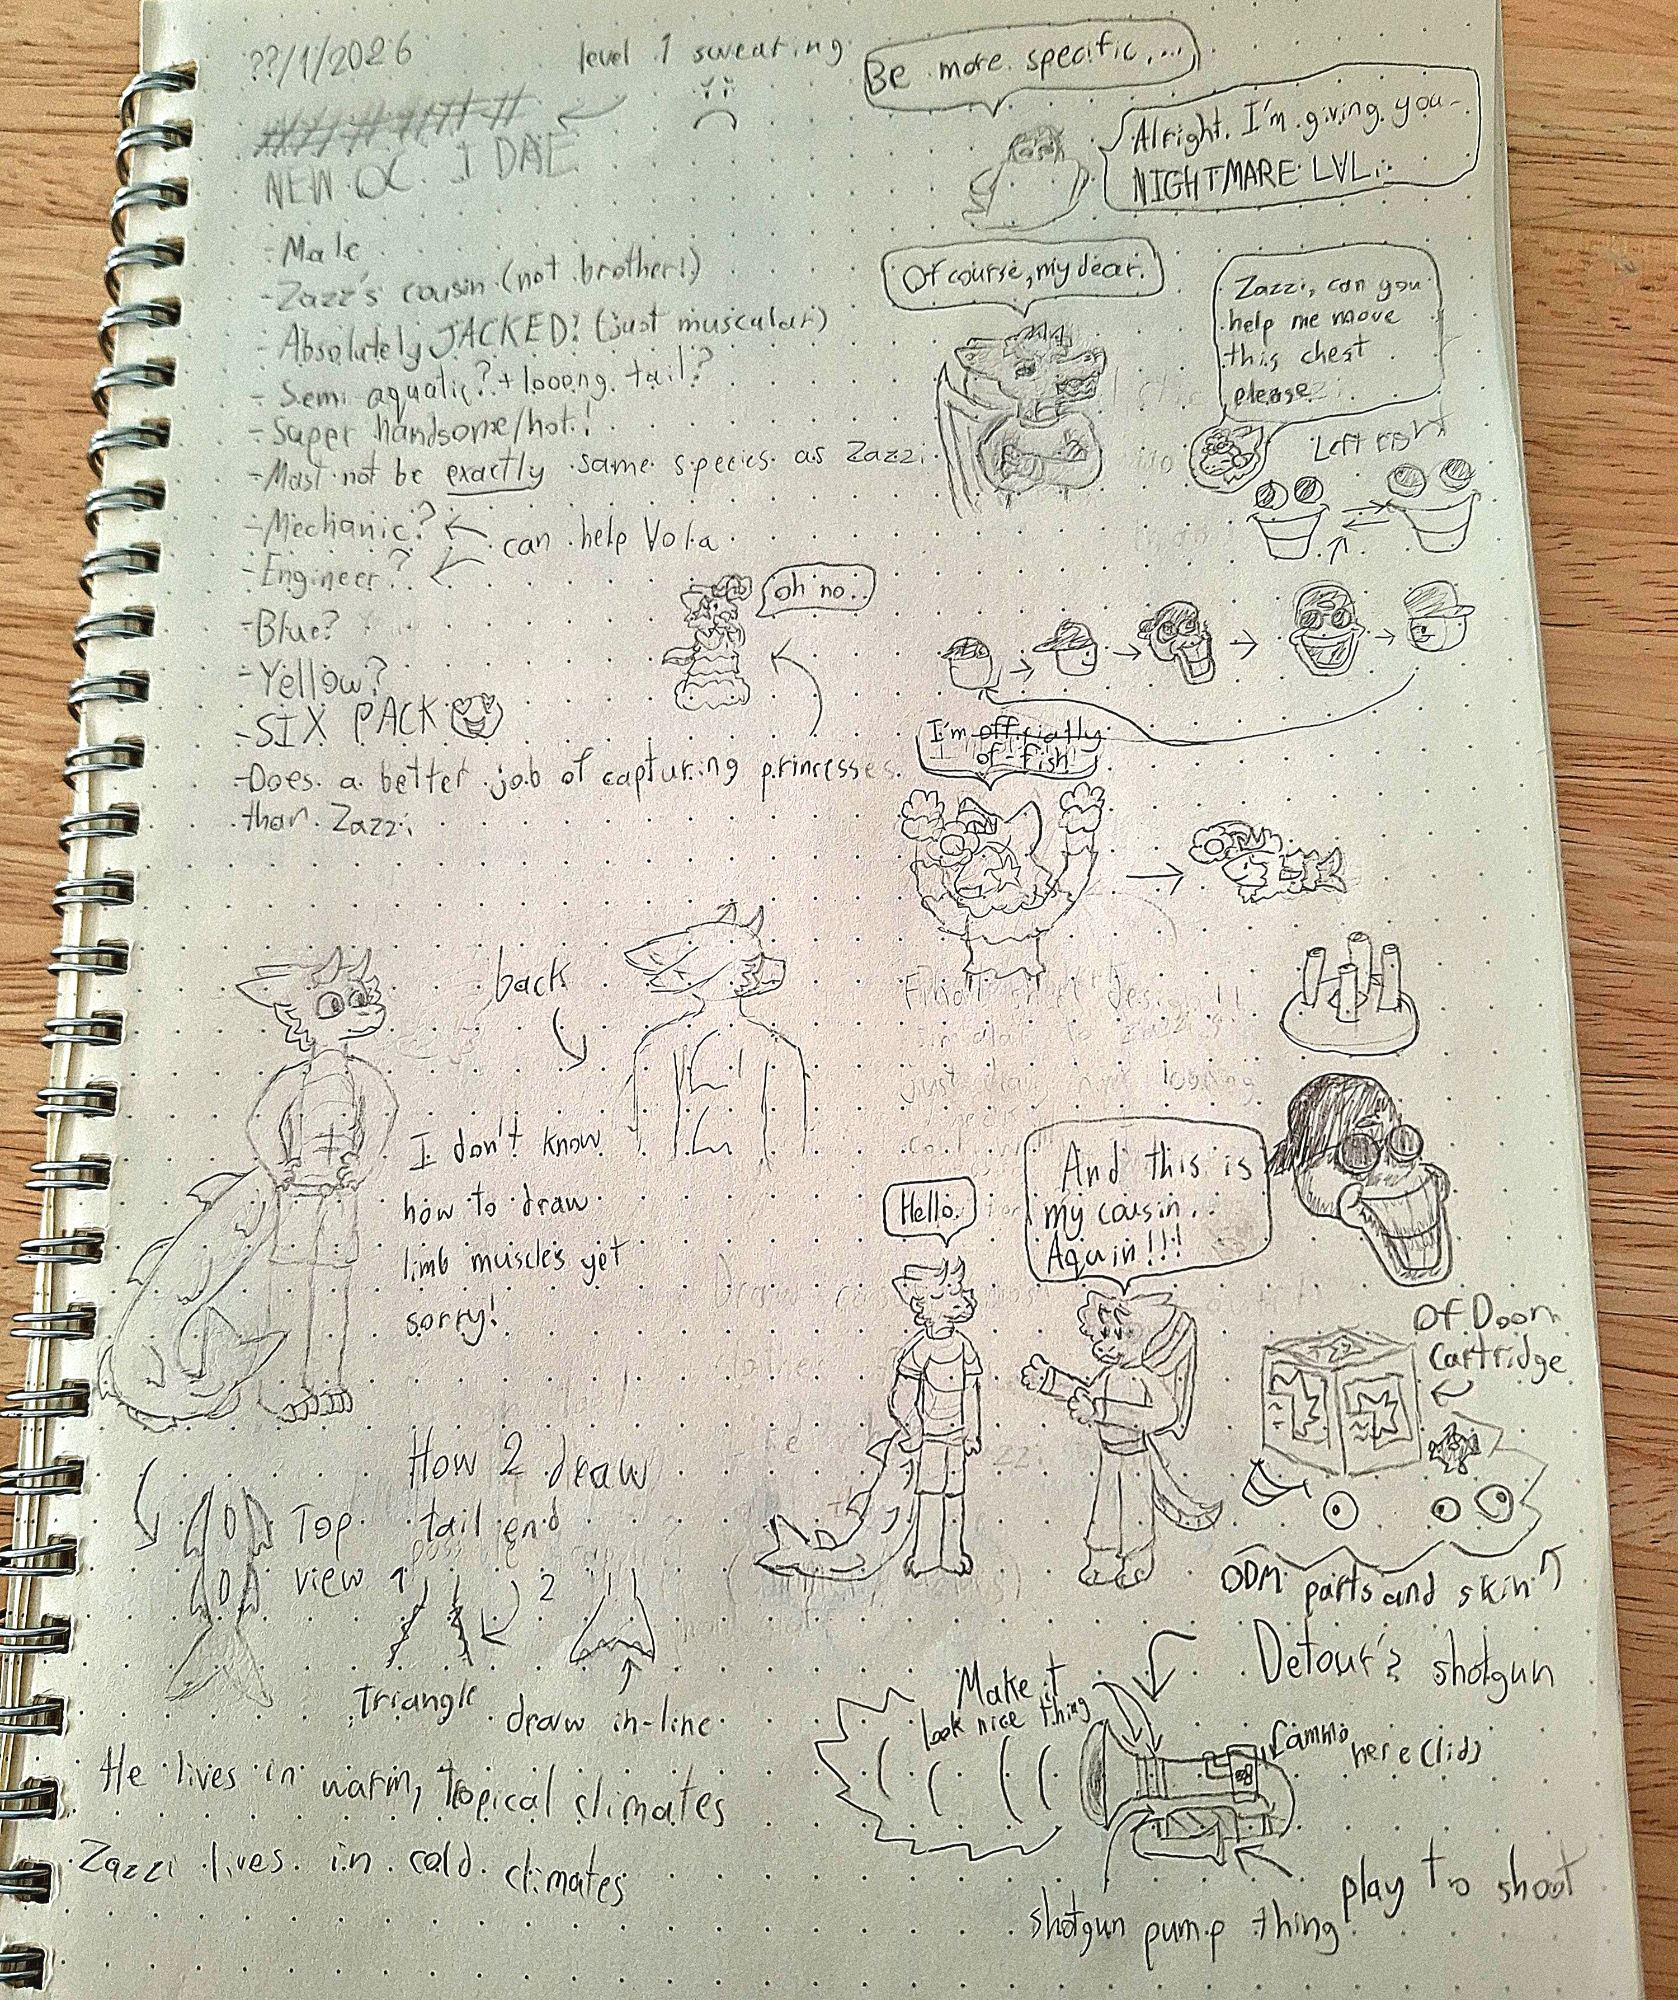 ??/1/2026
level 1 swearing
NEW OC I DAE
- Male
- Zazz's cousin (not brother!)
- Absolutely JACKED! (just muscular)
- Semi aquatic? + looong tail?
- Super handsome/hot!
- Must not be exactly same species as Zazzi
- Mechanic?
- Engineer?
can help Vola
- Blue?
- Yellow?
- SIX PACK
- Does a better job of capturing princesses
than Zazzi
oh no..
Be more specific,...
Alright. I'm giving you-
NIGHTMARE LVL.
Of course, my dear.
Zazzi, can you
help me move
this chest
please
Left right
I'm officially
of-fish!
back
I don't know
how to draw
limb muscles yet
sorry!
Hello.
And this is
my cousin..
Aquin!!!
Of Doom
Cartridge
ODM parts and skin
How 2 draw
tail end
Top
view
1
2
Triangle
draw in-line
He lives in warm, tropical climates
Zazzi lives in cold climates
Detour's shotgun
Make it
look nice thing
ammo
here (lid)
play to shoot
shotgun pump thing